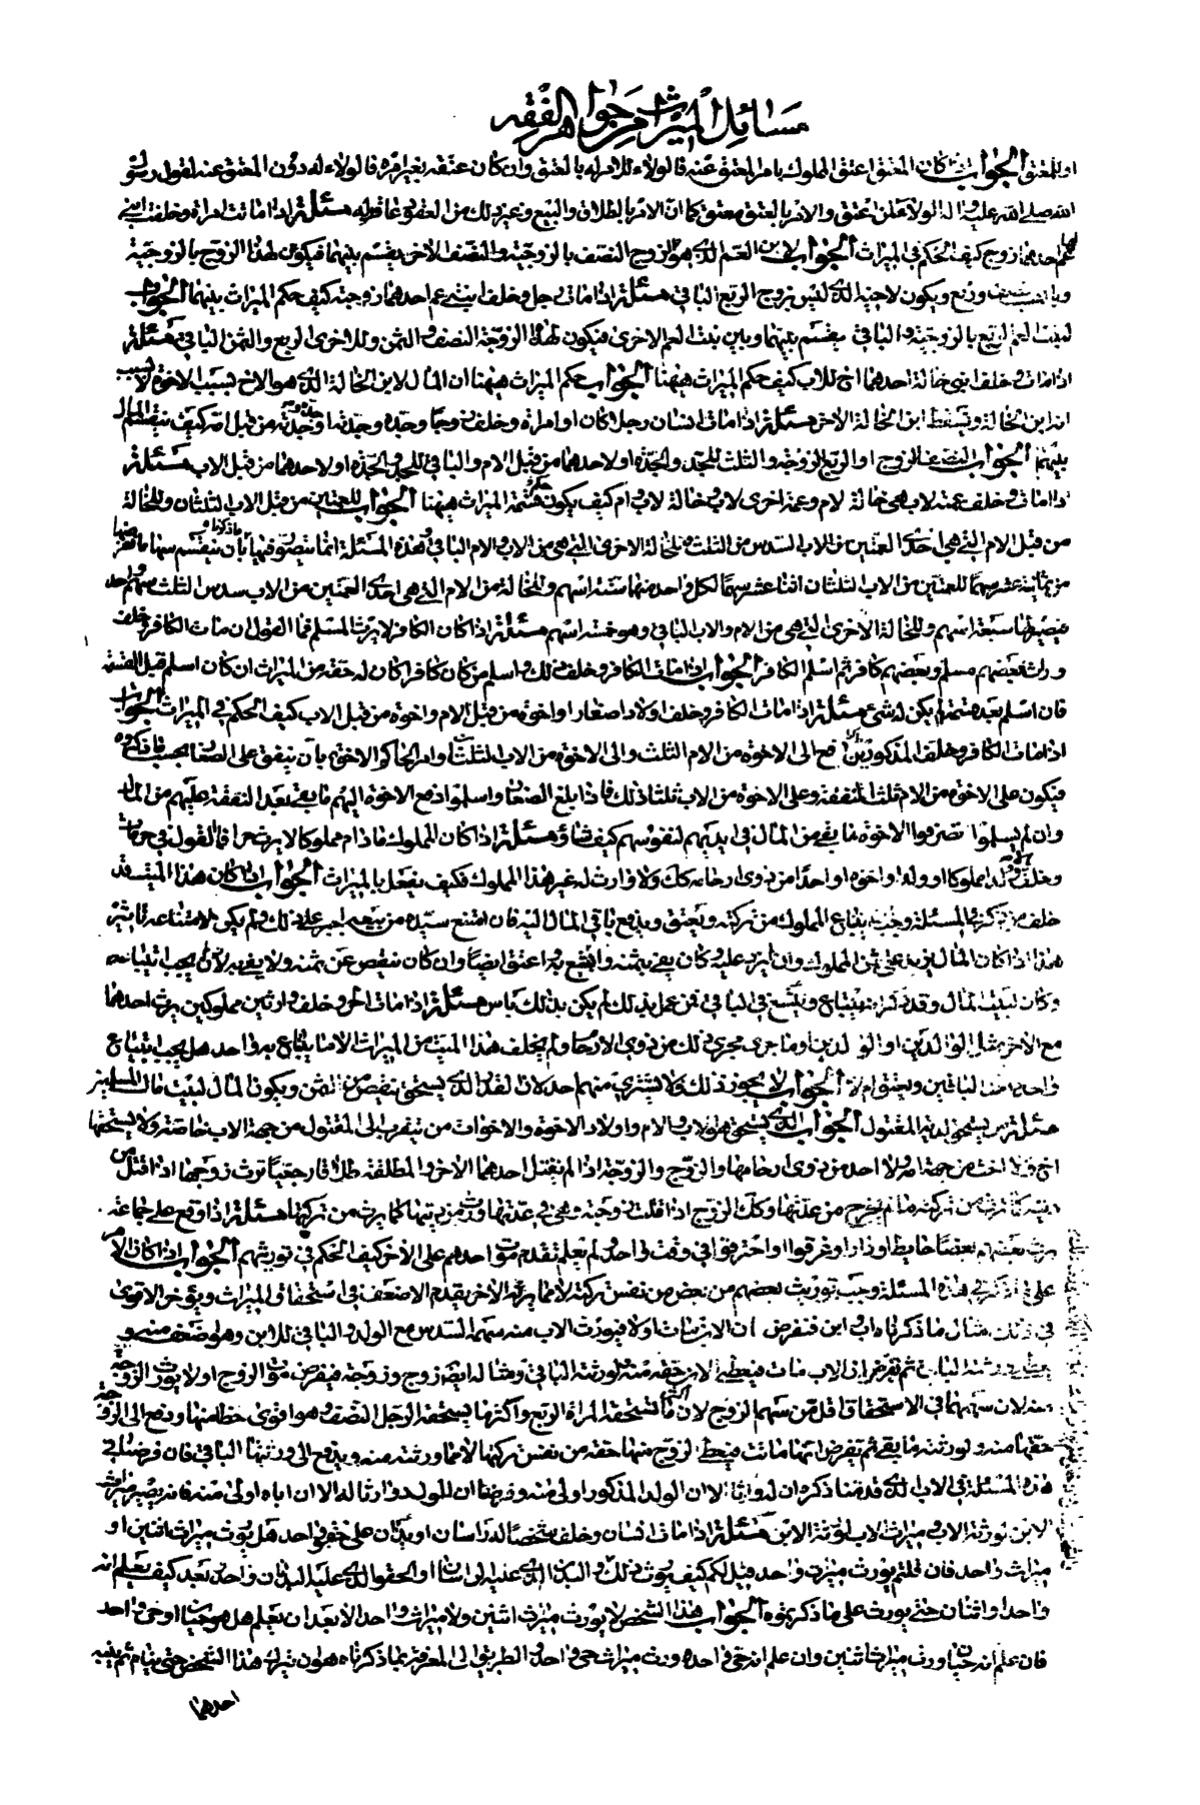 مسائل الميراث من جواهر الفقه
او للمعتق الجواب ان كان المعتق اعتق المملوك بامر المعتق عنه فالولاء للامر له بالعتق وان كان عتقه بغير امره فالولاء له دون المعتق عنه لقول رسول
الله صلى الله عليه واله الولاء لمن اعتق والامر بالعتق معتق كما ان الامر بالطلاق والبيع وغير ذلك من العقود عاقد له مسئلة اذا ماتت امراة وخلفت ابنى
عم لها احدهما زوج كيف الحكم في الميراث الجواب لابن العم الذى هو الزوج النصف بالزوجية والنصف الاخر يقسم بينهما فيكون لهذا الزوج بالزوجية
نصف وربع ويكون لاخيه الذى ليس بزوج الربع الباقى مسئلة اذا مات رجل وخلف ابنتى عم احدهما زوجته كيف حكم الميراث بينهما الجواب
لبنت العم الربع بالزوجية والباقى يقسم بينهما وبين بنت العم الاخرى فيكون لهذه الزوجة النصف والثمن وللاخرى الربع والثمن الباقى مسئلة
اذا مات وخلف ابنى خالة احدهما اخ للاب كيف حكم الميراث ههنا الجواب حكم الميراث ههنا ان المال لابن الخالة الذى هو الاخ بسبب الاخوة لا بسبب
انه ابن الخالة ويسقط ابن الخالة الاخر مسئلة اذا مات انسان رجل كان او امراة وخلف زوجا وجده وجدته وجده وجدته من قبل امه كيف يقسم المال
بينهم الجواب النصف للزوج او الربع للزوجة والثلث للجد والجدة او لاحدهما من قبل الام والباقى للجد والجدة او لاحدهما من قبل الاب مسئلة
اذا مات وخلف عمة لاب هى خالة لام وعمة اخرى لاب وخالة لاب وام كيف يكون حكم قسمة الميراث ههنا الجواب للعمتين من قبل الاب الثلثان وللخالة
من قبل الام التى هى احدى العمتين من الاب السدس من الثلث وللخالة الاخرى التى هى من الاب والام الباقى وهذه المسئلة انما يتصور فيها ما ذكرناه بان يقسم سهامها
من ثمانية عشر سهما للعمتين من الاب الثلثان اثنا عشر سهما لكل واحد منهما ستة اسهم وللخالة من الام التى هى احدى العمتين من الاب سدس الثلث سهم واحد
فيصير لها سبعة اسهم وللخالة الاخرى التى هى من الام والاب الباقى وهو خمسة اسهم مسئلة اذا كان الكافر لا يرث المسلم فما القول ان مات الكافر وخلف
ورثة بعضهم مسلم وبعضهم كافر ثم اسلم الكافر الجواب اذا مات الكافر وخلف ذلك واسلم من كان كافرا كان له حقه من الميراث ان كان اسلم قبل القسمة
فان اسلم بعد قسمته لم يكن له شئ مسئلة اذا مات الكافر وخلف اولادا صغارا واخوة من قبل الام واخوة من قبل الاب كيف الحكم في الميراث الجواب
اذا مات الكافر وخلف المذكورين دفع الى الاخوة من الام الثلث والى الاخوة من الاب الثلثان وامر الحاكم الاخوة بان ينفق على الصغار بحسب ما ذكروه
فيكون على الاخوة من الام ثلث النفقة وعلى الاخوة من الاب ثلثا ذلك فاذا بلغ الصغار واسلموا دفع الاخوة اليهم ما بقى بعد النفقة عليهم من المال
وان لم يسلموا تصرفوا الاخوة فيما بقى من المال في ايديهم لنفوسهم كيف شاؤا مسئلة اذا كان المملوك ما دام مملوكا لا يرث حرا فما القول في حر مات
وخلف والدا مملوكا او ولدا او اخوة او احدا من ذوى ارحامه كك ولا وارث له غير هذا المملوك فكيف يفعل بالميراث الجواب اذا كان هذا الميت قد
خلف من ذكر في المسئلة وجب ان يبتاع المملوك من تركته ويعتق ويدفع باقى المال اليه فان امتنع سيده من بيعه اجبر على ذلك ولم يكن لامتناعه تاثير
هذا اذا كان المال يزيد على ثمن المملوك وان لم يزد عليه وكان يفى بثمنه ابتيع به واعتق ايضا وان كان ينقص عن ثمنه ولا يفى به لم يجب ابتياعه
وكان لبيت المال وقد ذكر انه يبتاع ويستسعى في الباقى فمن عمل بذلك لم يكن بذلك باس مسئلة اذا مات الحر وخلف وارثين مملوكين يرث احدهما
مع الاخر مثل الوالدين او الولدين وما جرى مجرى ذلك من ذوى الارحام ولم يخلف هذا الميت من الميراث الا ما يبتاع به واحد هل يجب ابتياع
واحد من الباقين ويعتق ام لا الجواب لا يجوز ذلك ولا يشترى منهم احد لان القدر الذى يستحق ينقص من الثمن ويكون المال لبيت مال المسلمين
مسئلة من يستحق لدية المقتول الجواب الذى يستحقها هو الاب والام واولاد الاخوة والاخوات من يتقرب الى المقتول من جهة الاب خاصة ولا يستحقها
اخ ولا اخت من جهة امه ولا احد من ذوى ارحامها والزوج والزوجة اذا لم يقتل احدهما الاخر والمطلقة طلاقا رجعيا ترث زوجها اذا قتل من
ديته كما ترث من تركته ما لم يخرج من عدتها وكك الزوج اذا قتلت زوجته وهى في عدتها ورث من ديتها كما يرث من تركتها مسئلة اذا وقع على جماعة
يرث بعضهم بعضا حايط او دار او غرقوا او احترقوا في وقت واحد ولم يعلم تقدم موت احدهم على الاخر كيف الحكم في توريثهم الجواب اذا كان الامر
على ما ذكر في هذه المسئلة وجب توريث بعضهم من بعض من نفس تركته لا مما يرثه الاخر يقدم الاضعف في استحقاق الميراث ويؤخر الاقوى
في ذلك مثال ما ذكرناه اب وابن فنفرض ان الابن مات اولا فيورث الاب منه سهمه السدس مع الولد والباقى للابن وهو اضعف منه و
يرث ورثته الباقى ثم نفرض ان الاب مات فيعطى الابن حقه منه ولورثته الباقى ومثاله ايضا زوج وزوجة فيفرض موت الزوج اولا ويورث الزوجة
منه لان سهمها في الاستحقاق اقل من سهم الزوج لان اكثر ما تستحقه المراة الربع واكثر ما يستحقه الرجل النصف وهو اقوى حظا منها ودفع الى الزوجة
حقها منه ولورثته ما بقى ثم يفرض انها ماتت فيعطى الزوج منها حقه من نفس تركتها لا مما ورثته منه ويدفع الى ورثتها الباقى فان فرضنا في
هذه المسئلة في الاب الذى قدمنا ذكره ان له وارثا الا ان الولد المذكور اولى منه وفرضنا ان للولد وارثا له الا ان اباه اولى منه فانه يصير ميراث
الابن لورثة الاب وميراث الاب لورثة الابن مسئلة اذا مات انسان وخلف شخصا له راسان او بدنان على حقو واحد هل يورث ميراث اثنين او
ميراث واحد فان قلتم يورث ميراث واحد قيل لكم كيف يورث ذلك والبدن الذى عليه الراسان او الحقو الذى عليه البدنان واحد بعد كيف يعلم انه
واحد او اثنان حتى يورث على ما ذكرتموه الجواب هذا الشخص لا يورث ميراث اثنين ولا ميراث واحد الا بعد ان يعلم هل هو حيان او حى واحد
فان علم انه حيان ورث ميراث اثنين وان علم انه حى واحد ورث ميراث حى واحد والطريق الى المعرفة بما ذكرناه هو ان يترك هذا الشخص حتى ينام ثم ينبه
احدهما